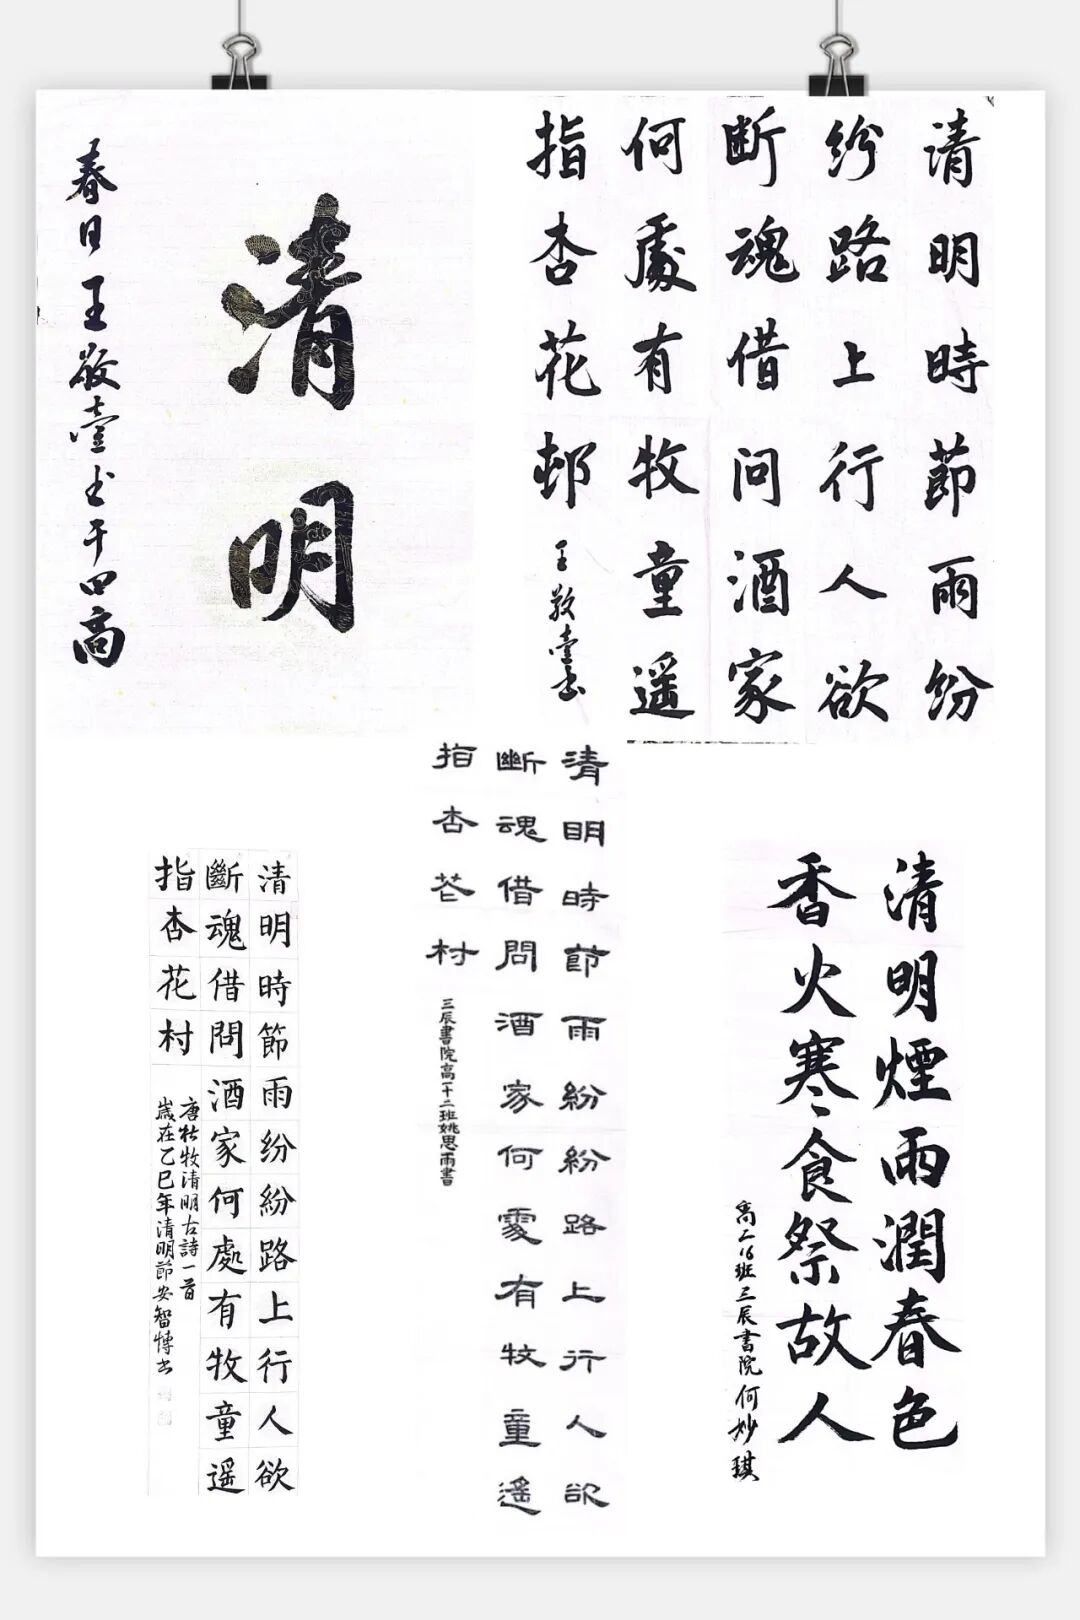 清明
春日王敬壹书于四高
清明時節雨纷
纷路上行人欲
断魂借问酒家
何處有牧童遥
指杏花邨
王敬壹书
清明時節雨紛紛路上行人欲
斷魂借問酒家何處有牧童遥
指杏花村
唐杜牧清明古詩一首
歲在乙巳年清明節安智博书
清明時節雨紛紛路上行人欲
斷魂借問酒家何處有牧童遥
指杏花村
三辰書院高十二班姚思雨書
清明煙雨潤春色
香火寒食祭故人
高二16班三辰書院何妙琪